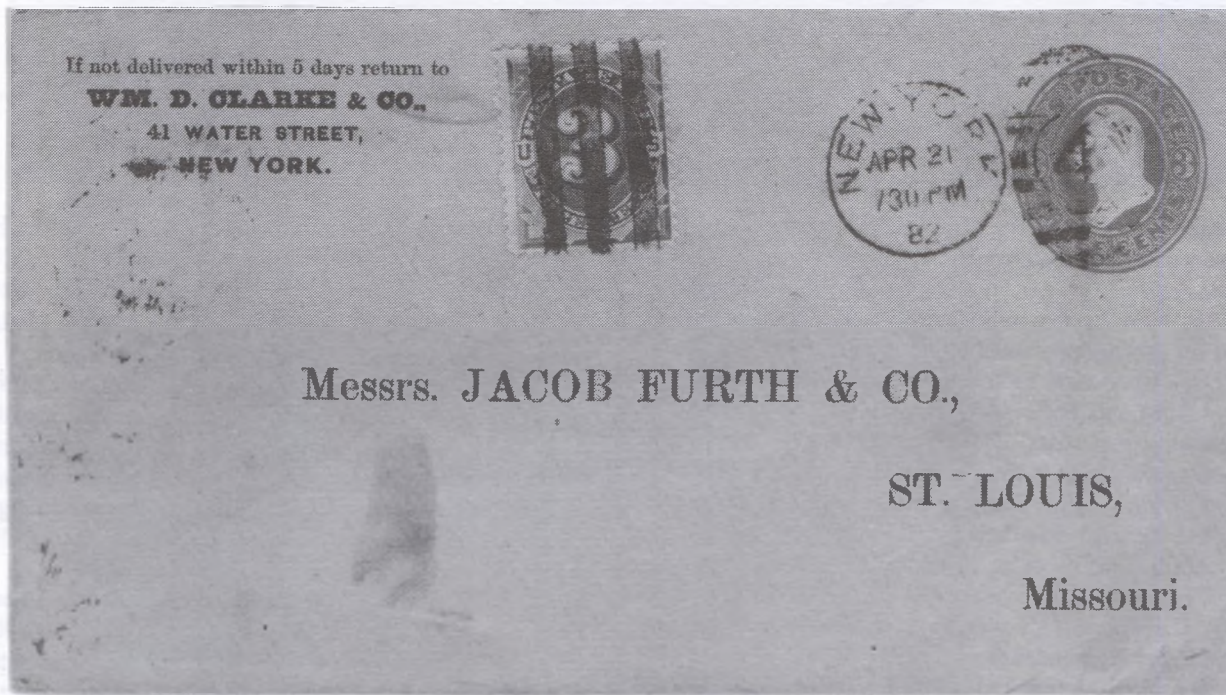 If not delivered within 5 days return to
WM. D. CLARKE & CO.,
41 WATER STREET,
NEW YORK.
3
NEW YORK
APR 21
730 PM
82
POSTAGE
3
CENTS
Messrs. JACOB FURTH & CO.,
ST. LOUIS,
Missouri.